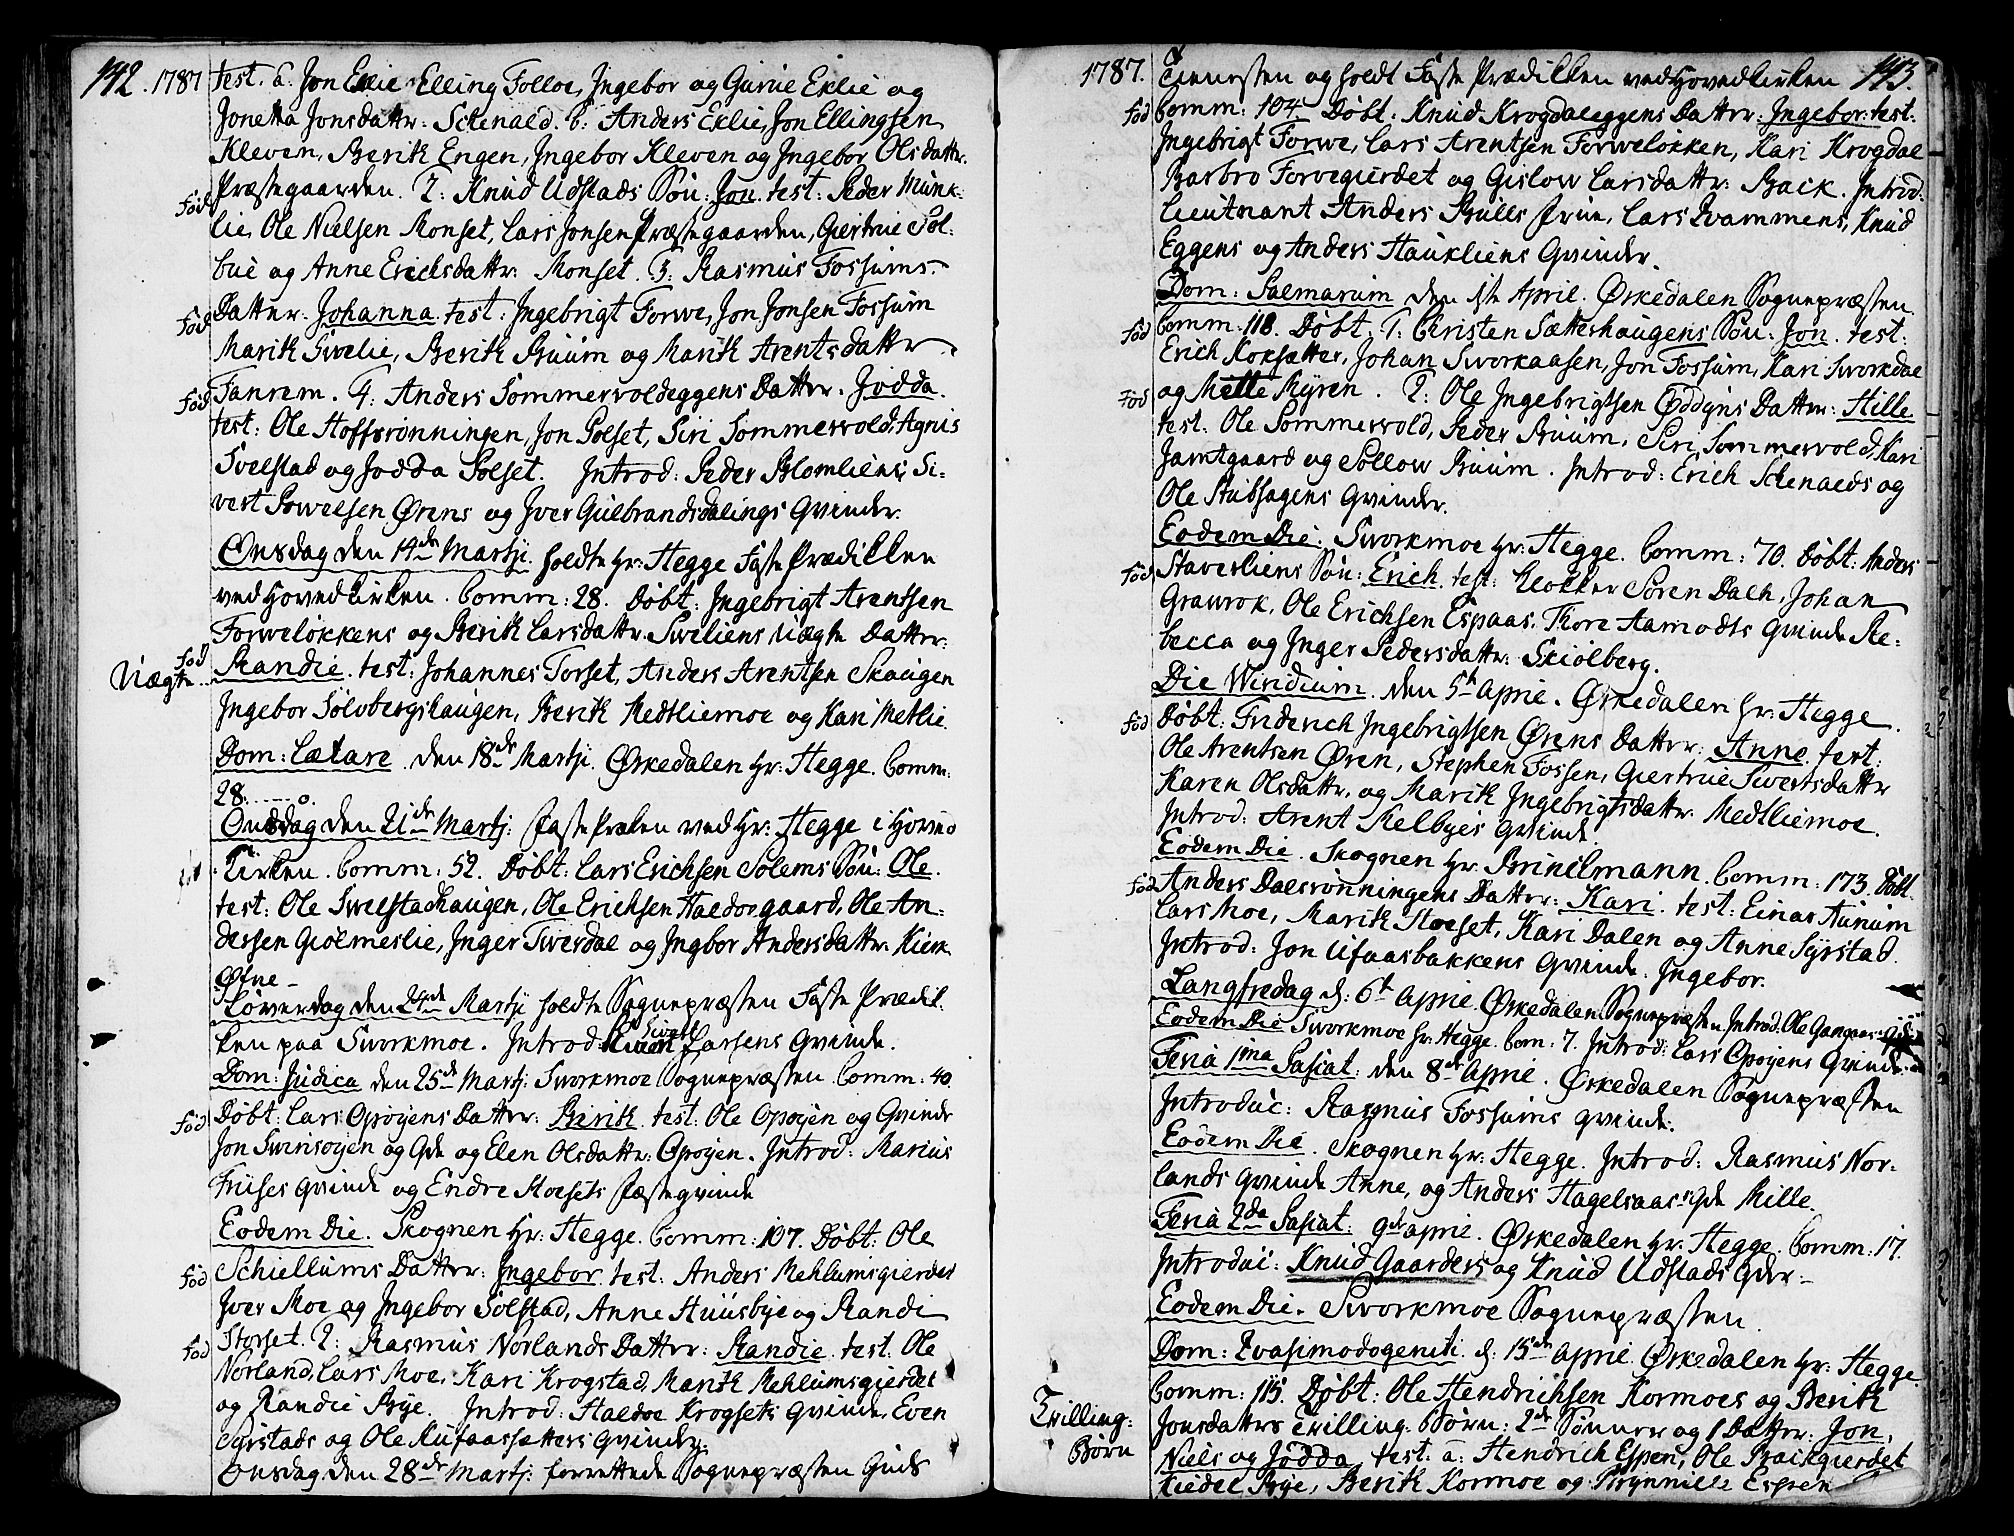 142. 1787
test. a. Jon Eklie, Elling Folloe, Ingebor og Gurue Eklie og
Jonetta Jonsdattr: Schenald. b: Anders Eklie, Jon Ellingsen
Kleven, Berik Engen, Ingebor Kleven og Ingebor Olsdattr.
Præstegaarden. 2: Knud Udstads Søn: Jon. test: Peder Munk-
Fød
lie, Ole Nielsen Monset, Lars Jonsen Præstegaarden, Giertrue Sol-
bue og Anne Erichsdattr: Monset. 3: Rasmus Fossums
Fød Datter: Johanna. test: Ingebrigt Forwe, Jon Jonsen Fossum
Marik Swelie, Berik Buum og Marik Arentsdattr
Fød Fanrem. 4: Anders Sommervoldeggens Datter. Jødda.
test: Ole Hoffsrønningen, Jon Solset, Siri Sommervold, Agnis
Svelstad og Jødda Solset. Introd: Peder Blomliens, Si-
vert Powelsen Ørens og Iver Gulbrandsdalings Qvinder.
Onsdag den 14de Martji. holdte Hr: Hegge Faste Prædikken
ved Hovedkirken. Comm: 28. Døbt: Ingebrigt Arentsen
Forweløkkens og Berik Larsdattr. Sweliens Uægte Datter:
Fød
Uægte. Randie. test: Johannes Forset, Anders Arentsen Skaugen
Ingebor Solvbergshaugen, Berik Medtliemoe og Kari Metlie.
Dom: Lætare. den 18de Martji. Ørkedalen Hr: Hegge. Comm:
28.
Onsdag den 21de Martj: Faste Præken ved Hr: Hegge i Hoved
Kirken. Comm: 52. Døbt: Lars Erichsen Solems Søn: Ole.
test: Ole Swelstadhaugen, Ole Erichsen Haldorgaard, Ole An-
dersen Giolmeslie, Inger Twerdal og Ingbor Andersdattr. Kierk
Øfne
Løverdag den 24de Martji holdte Sognepræsten Faste Prædik-
ken paa Svorkmoe. Introd: Sivert Larsens Qvinde.
Dom: Judica den 25de Martj: Svorkmoe Sognepræsten Comm: 40.
Fød Døbt: Lars Opøyens Datter: Berik. test: Ole Opøyen og Qvinde
Jon Swinsøyen og Qde og Elen Olsdattr: Opøyen. Introd: Marius
Friises Qvinde og Endre Moesets Fæsteqvinde
Eodem Die. Skognen Hr: Hegge. Comm: 107. Døbt: Ole
Fød Schiellums Datter: Ingebor. test: Anders Mehlumsgierdet
Iver Moe og Ingebor Solstad, Anne Huusbye og Randi
Fød Storset. 2: Rasmus Norlands Datter: Randie. test. Ole
Norland, Lars Moe, Kari Krogstad, Marik Mehlumsgierdet
og Randie Bye. Introd: Haldoe Krogsets Qvinde, Even
Syrstads og Ole Aufaassætters Qvinder.
Onsdag den 28de Martj: forrettede Sognepræsten Guds
1787. 143.
Tienesten og holdt Faste Prædikken ved Hovedkirken
Fød Comm: 104. Døbt. Knud Krogdaleggens Datter: Ingebor: test:
Ingebrigt Forwe, Lars Arentsen Forweløkken, Kari Krogdal
Barbro Forvegierdet og Gislow Larsdattr: Back. Introd:
Lieutnant Anders Bulls Frue, Lars Kwammens, Knud
Eggens og Anders Haukliens Qvinder.
Dom: Palmarum den 1ste April. Ørkedalen Sognepræsten
Fød Comm: 118. Døbt. 1: Christen Sætterhaugens Søn: Jon. test:
Erich Koksætter, Johan Svorkaasen, Jon Fossum, Kari Svorkdal
Fød og Mette Myren. 2: Ole Ingebrigtsen Oddyns Datter: Hille
test: Ole Sommervold, Peder Buum, Siri Sommervold, Kari
Jamtgaard og Sollow Buum. Introd: Erich Schenalds og
Ole Stubhagens Qvinder.
Eodem Die: Svorkmoe Hr: Hegge. Comm: 70. Døbt: Anders
Fød Staverliens Søn: Erich. test: Klokker Søren Dalh, Johan
Grawrok, Ole Erichsen Espaas, Thore Aamodts Qvinde Re-
becca og Inger Pedersdattr: Skiolberg.
Die Wiridium. den 5te Aprie. Ørkedalen Hr: Hegge.
Fød Døbt: Friderich Ingebrigtsen Ørens Datter: Anne. test:
Ole Arentsen Øren, Stephen Fossen, Giertrue Sivertsdattr
Karen Olsdattr. og Marik Ingebrigtsdattr. Medtliemoe.
Introd: Arent Melbyes Qvinde.
Eodem Die. Skognen Hr: Brinchmann. Comm: 173. Døbt
Fød Anders Dalsrønningens Datter: Kari. test: Einar Aunum
Lars Moe, Marik Hoeset, Kari Dalen og Anne Syrstad.
Introd: Jon Ufaasbakkens Qvinde. Ingebor.
Langfredag d: 6te Aprie. Ørkedalen Sognepræsten Introd: Ole
Eodem Die Svorkmoe Hr: Hegge. Com: 7. Introd: Lars Opøyens Qvinde.
Feria 1ma Pasiat: den 8de Aprie. Ørkedalen Sognepræsten
Introduc: Rasmus Fossums Qvinde.
Eodem Die. Skognen Hr: Hegge. Introd: Rasmus Nor-
lands Qvinde Anne, og Anders Hagelsaas Qde Mille.
Feria 2da Pasiat: 9de Aprie. Ørkedalen Hr: Hegge. Comm: 17.
Introduc: Knud Gaarders og Knud Udstads Qder.
Eodem Die. Svorkmoe Sognepræsten.
Dom: Qvasimodogeniti. d: 15de Aprie. Ørkedalen Hr: Hegge.
Comm: 115. Døbt: Ole Hendrichsen Kormoes og Berik
Trilling:
Børn
Jonsdatters Trilling-Børn: 2de Sønner og 1 Datter: Jon,
Niels og Jødda. test: a: Hendrich Espen, Ole Baikgierdet
Kiedel Bye, Berik Kormoe og Brynnille Espen